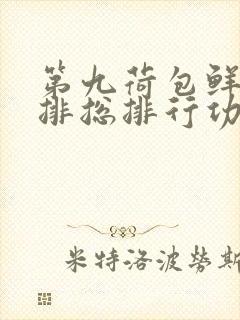 第九荷包鲜
排总排行功
米特洛波劳斯